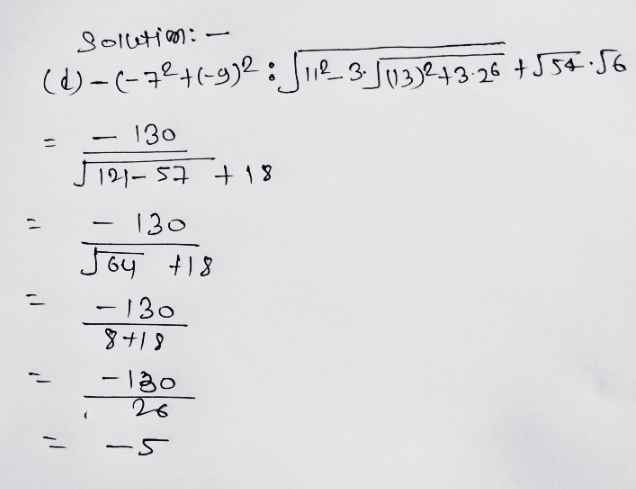 Solution:-
(d) - (-7² + (-9)² : √(11² - 3·√((13)² + 3·26)) + √54·√6
= - 130 / (√(121 - 57) + 18)
= - 130 / (√64 + 18)
= - 130 / (8 + 18)
= - 130 / 26
= - 5